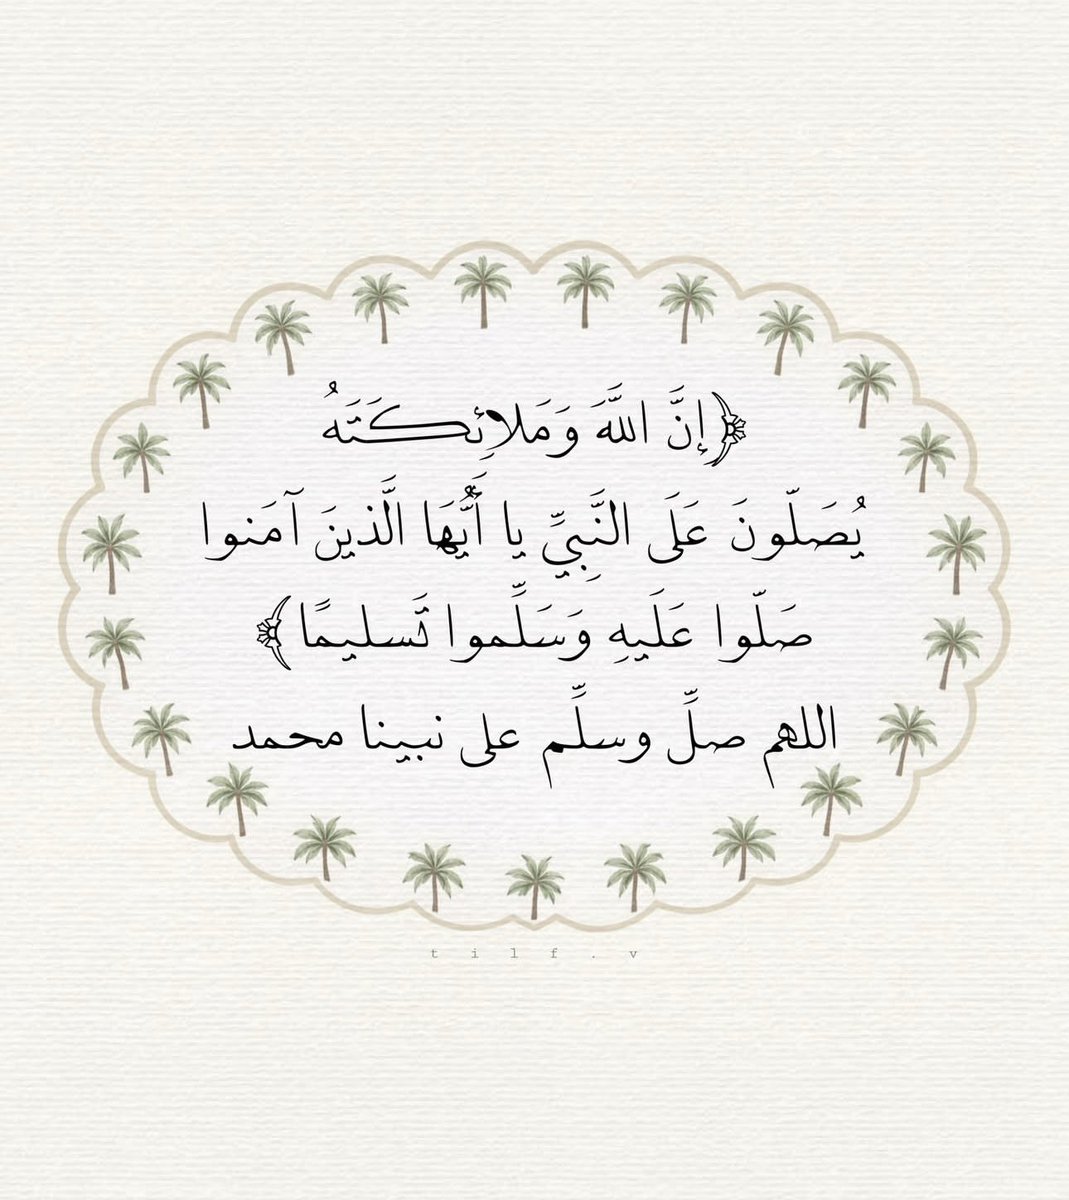 ﴿إِنَّ اللَّهَ وَمَلائِكَتَهُ
يُصَلّونَ عَلَى النَّبِيِّ يا أَيُّهَا الَّذينَ آمَنوا
صَلّوا عَلَيهِ وَسَلِّموا تَسليمًا﴾
اللهم صلِّ وسلِّم على نبينا محمد
tilf.v